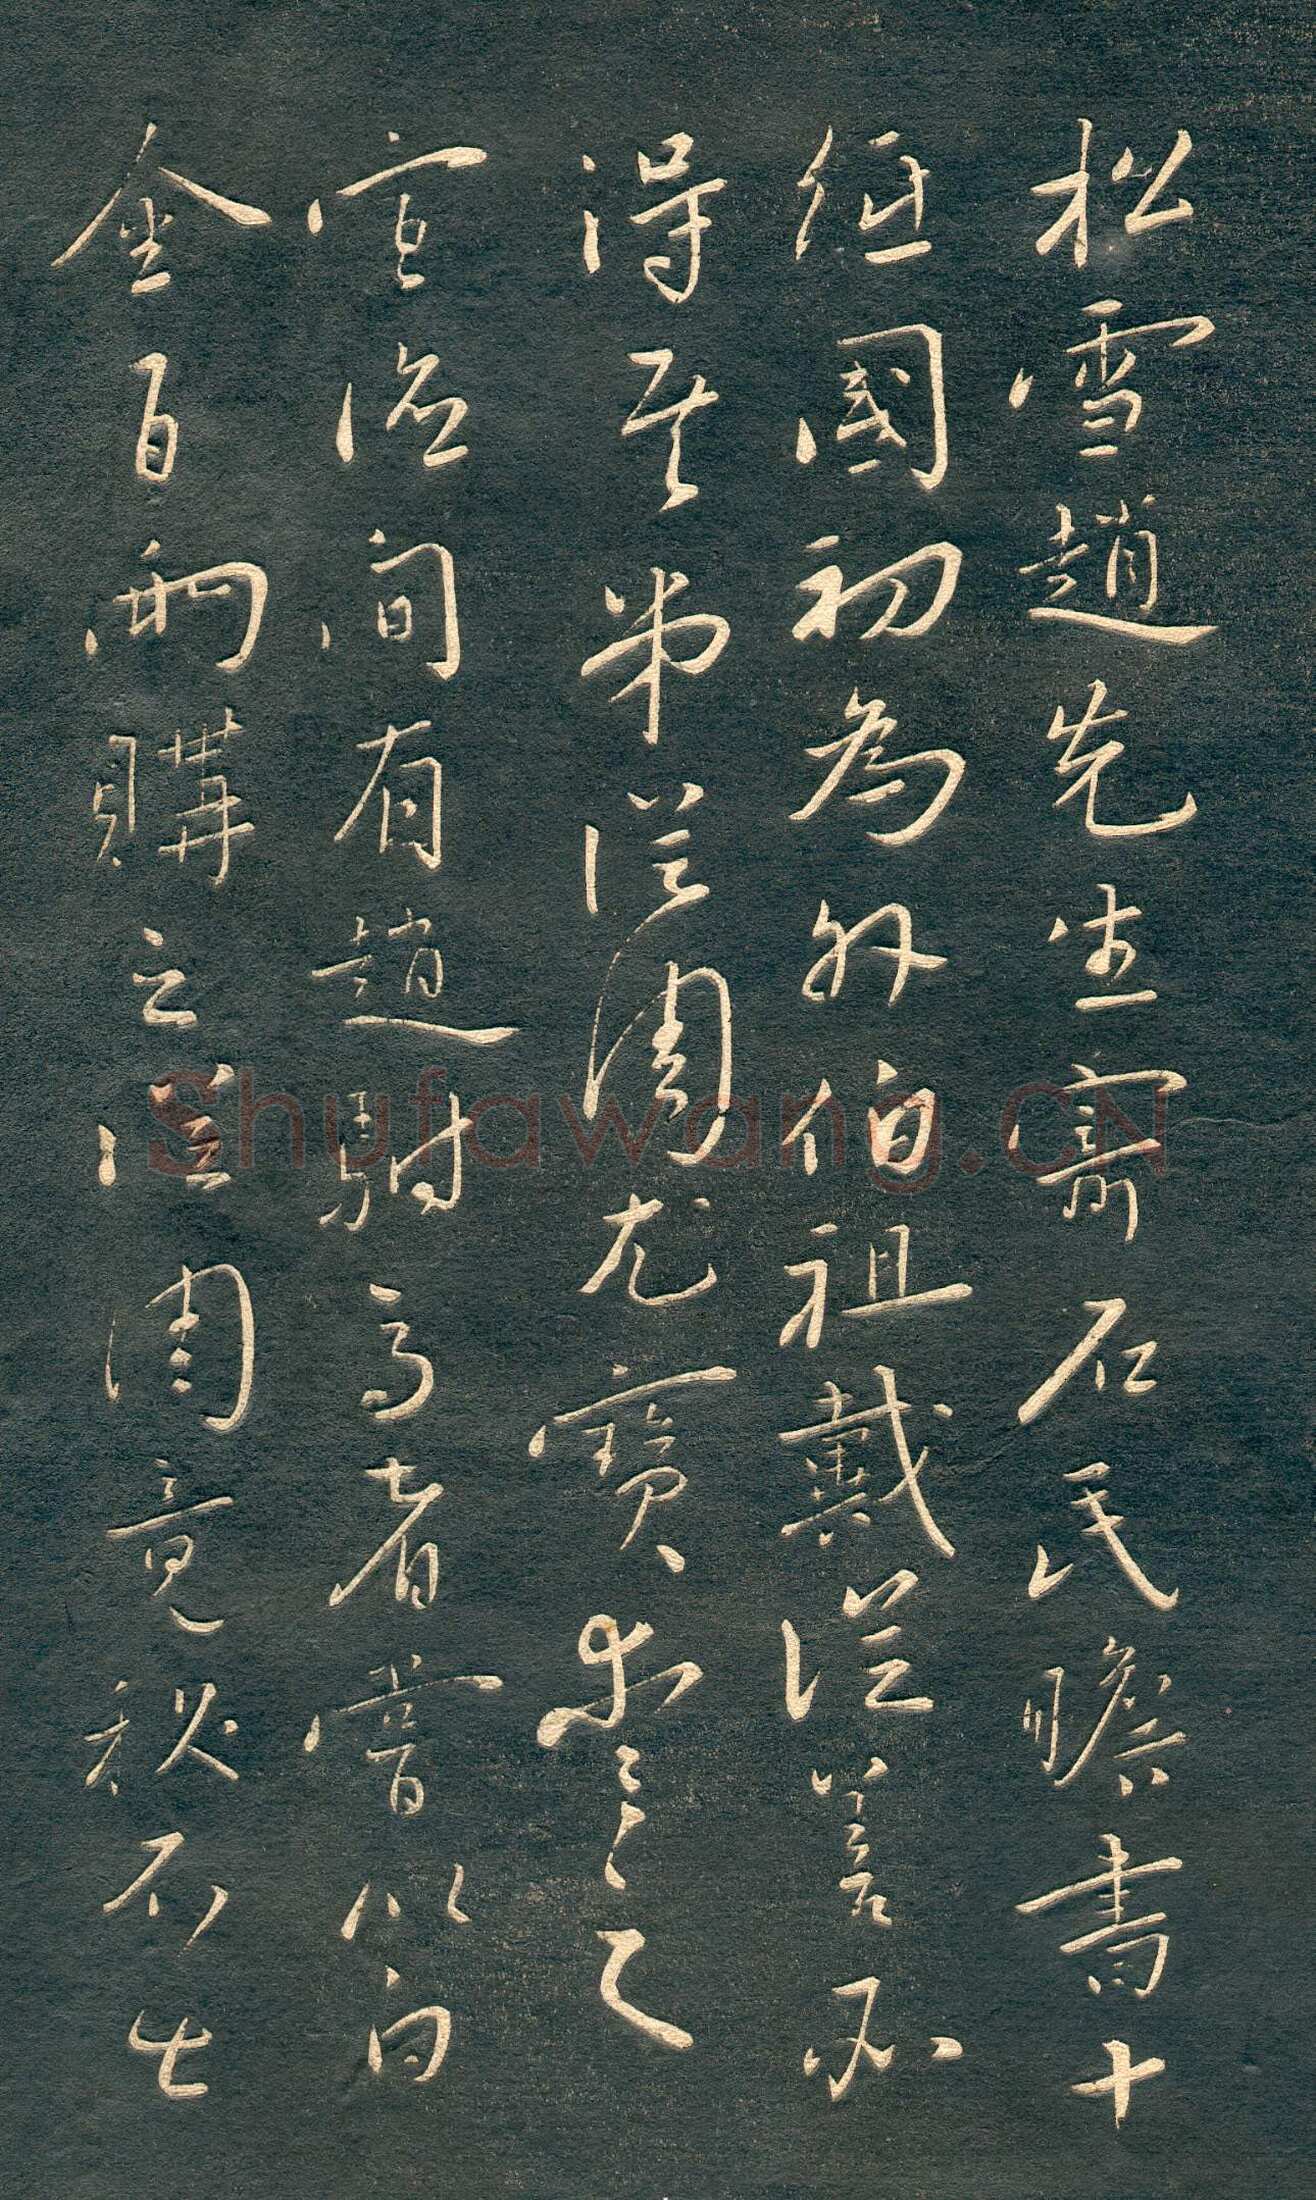 松雪趙先生齋石民瞻書十
紙國初為外伯祖戴從善所
得其弟從周尤寶愛之
宣德間有趙駙馬者嘗以白
金百兩購之從周竟秘不出
Shufawang.CN